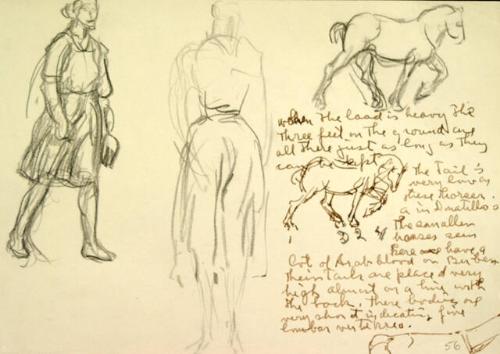 when the load is heavy the
three feet on the ground are
all there just as long as they
can be kept
The Tail is
very low as
these horses.
as in Donatello's
The smaller
horses seen
here have a
lot of Arab blood or Berber
Their Tails are placed very
high almost on a line with
the back. There bodies are
very short indicating five
lumbar vertebrae.
1 3 2 4
56